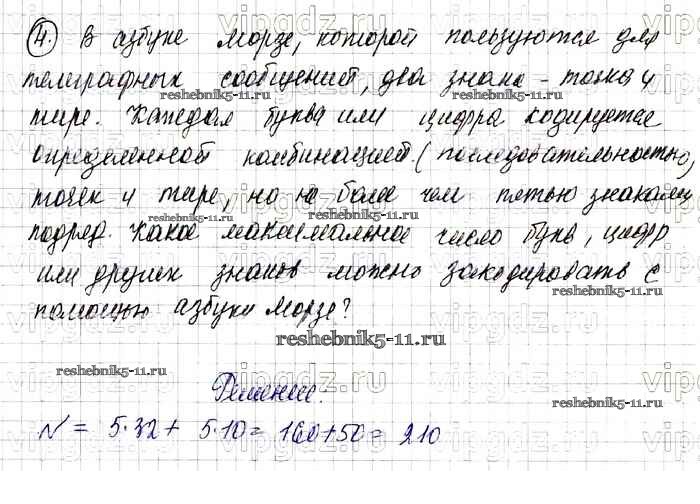 4. В азбуке морзе, которой пользуются для
телеграфных сообщений, два знака - точка и
тире. Каждая буква или цифра кодируется
определенной комбинацией (последовательностью)
точек и тире, но не более чем пятью знаками
подряд. Какое максимальное число букв, цифр
или других знаков можно закодировать с
помощью азбуки морзе?
Решение.
N = 5·32 + 5·10 = 160 + 50 = 210
vipgdz.ru
reshebnik5-11.ru